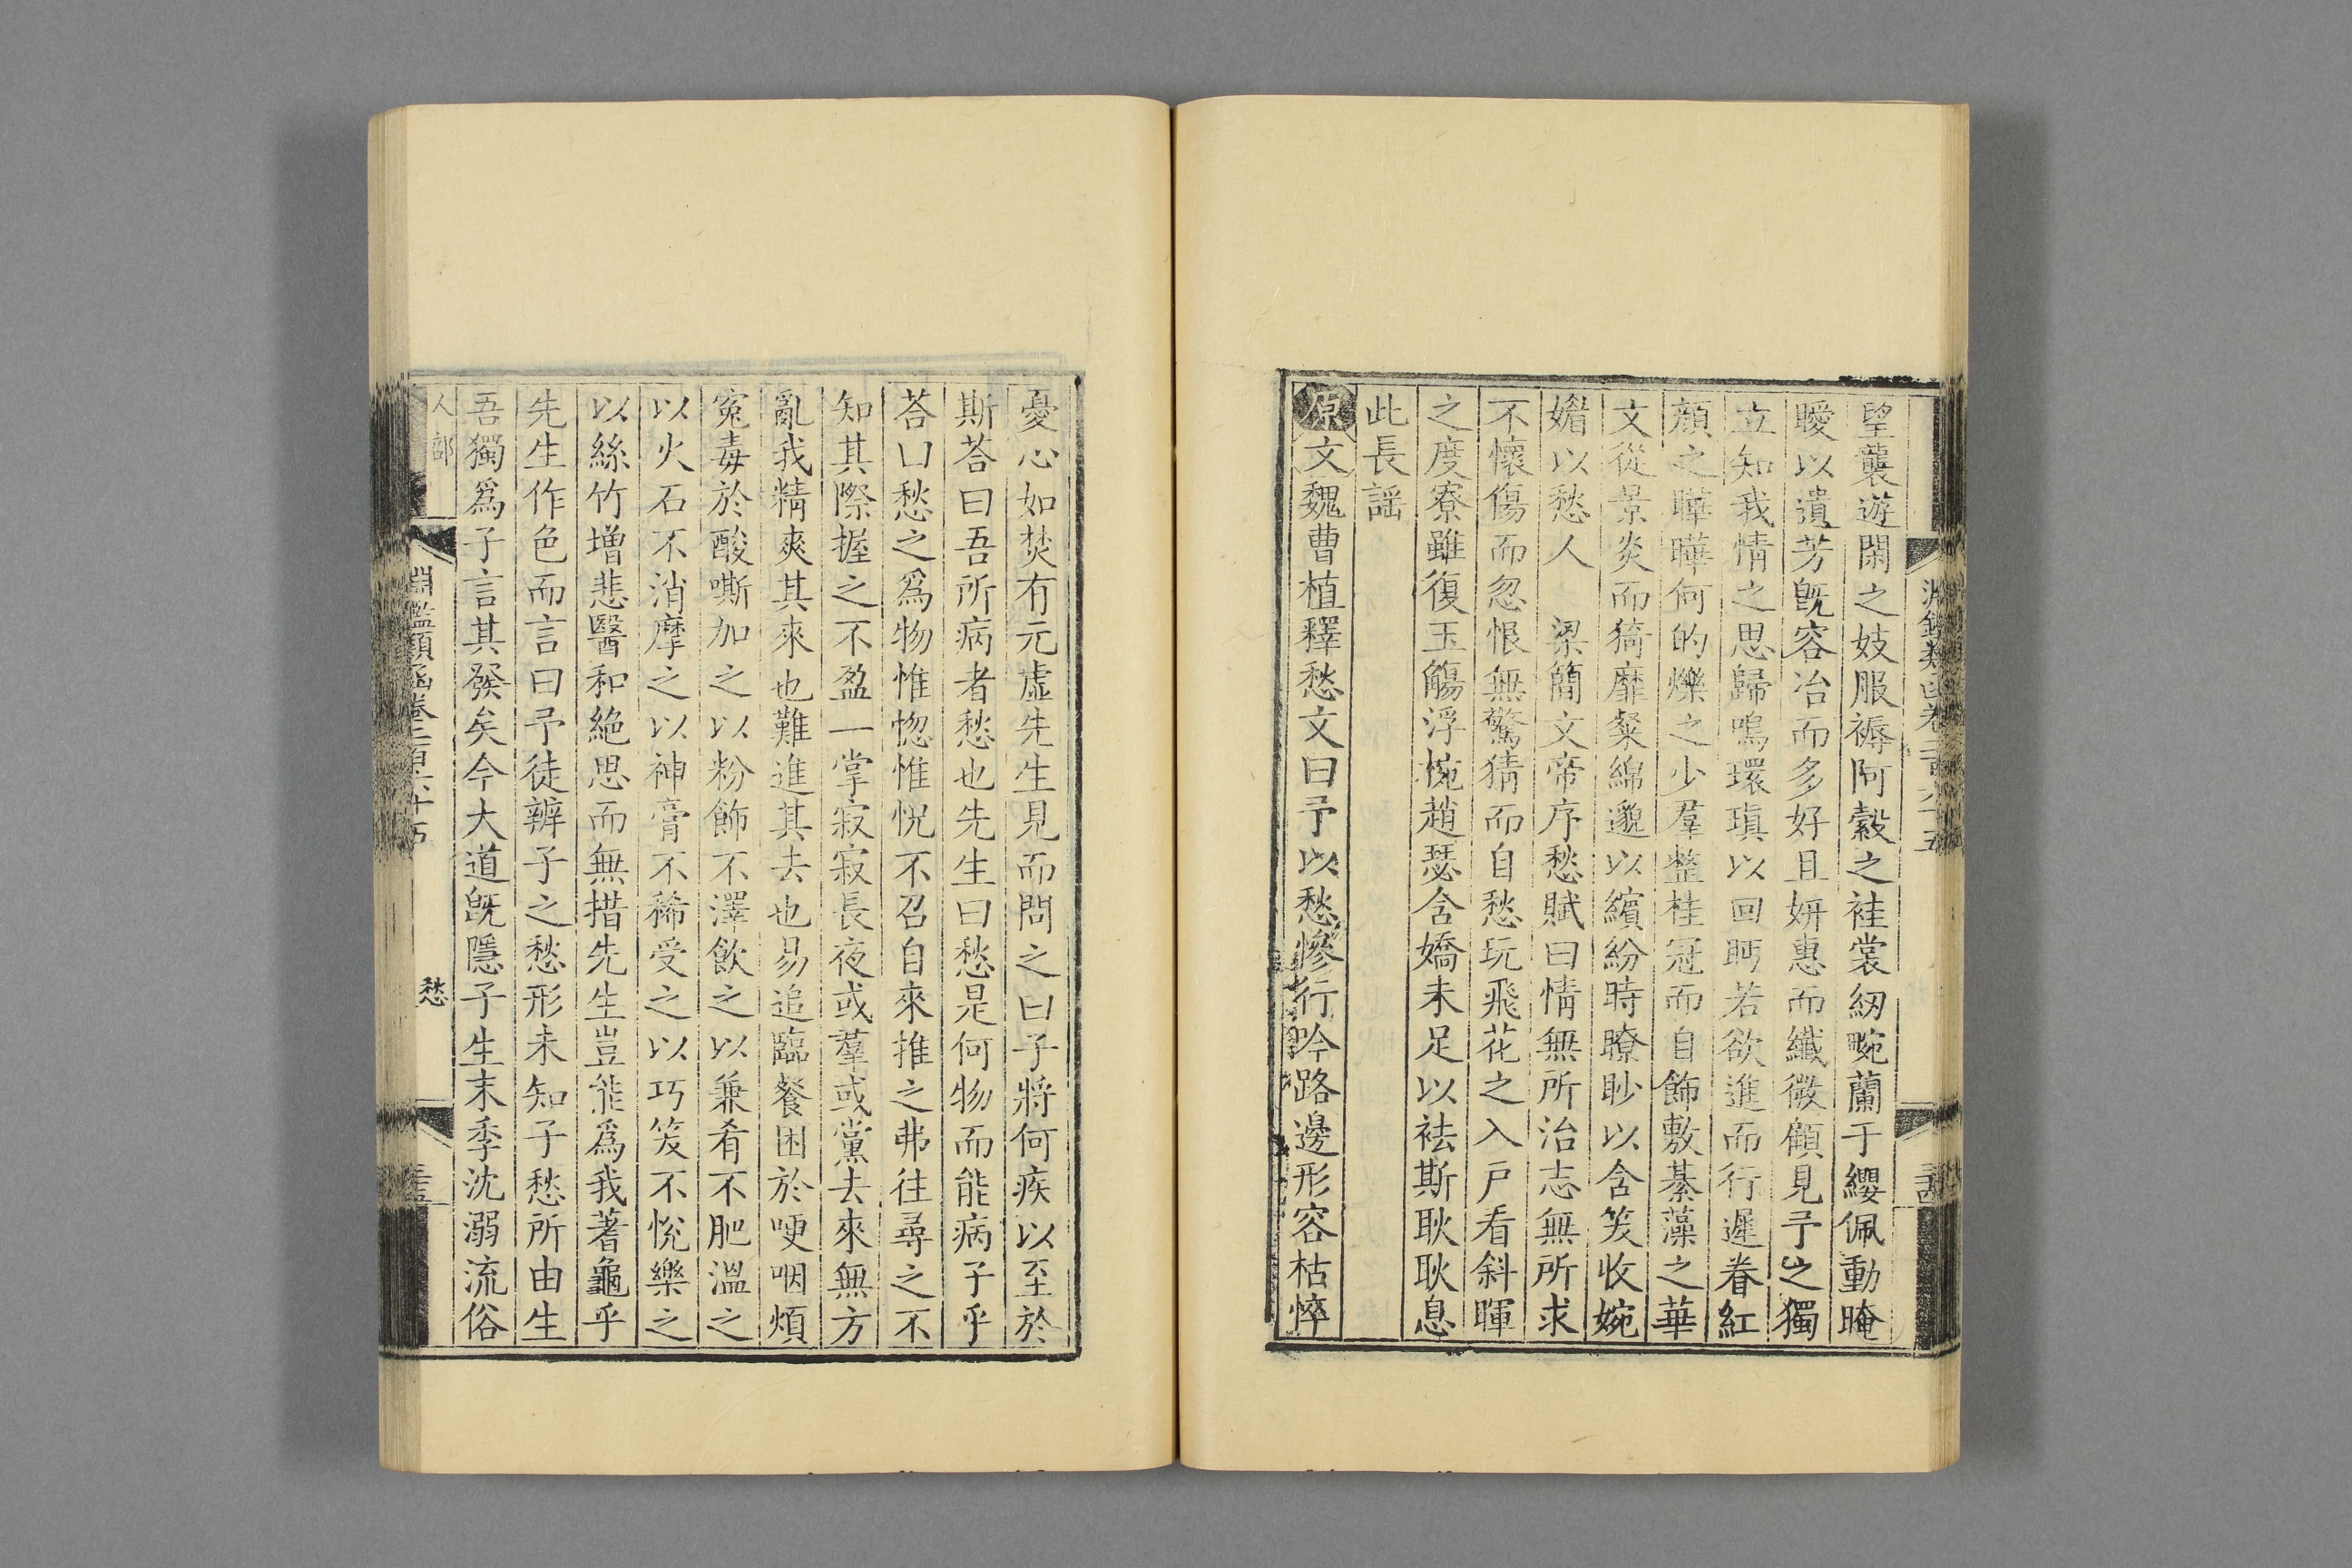 望襲遊閑之妓服褥阿縠之袿裳紉畹蘭于纓佩動晻
曖以遺芳旣容冶而多好且妍惠而纖微顧見予之獨
立知我情之思歸鳴環瑱以回眄若欲進而行遲眷紅
顏之曄曄何的爍之少羣整桂冠而自飾敷綦藻之華
文從景炎而猗靡粲綿邈以繽紛時瞭眇以含笑收婉
媚以愁人　梁簡文帝序愁賦曰情無所治志無所求
不懷傷而忽恨無驚猜而自愁玩飛花之入戶看斜暉
之度寮雖復玉觴浮椀趙瑟含嬌未足以袪斯耿耿息
此長謡
原文魏曹植釋愁文曰予以愁慘行吟路邊形容枯悴
憂心如焚有元虛先生見而問之曰子將何疾以至於
斯荅曰吾所病者愁也先生曰愁是何物而能病子乎
荅曰愁之爲物惟惚惟怳不召自來推之弗往尋之不
知其際握之不盈一掌寂寂長夜或羣或黨去來無方
亂我精爽其來也難進其去也易追臨餐困於哽咽煩
寃毒於酸嘶加之以粉飾不澤飲之以兼肴不肥溫之
以火石不消摩之以神膏不稀受之以巧笑不悅樂之
以絲竹增悲醫和絶思而無措先生豈能爲我蓍龜乎
先生作色而言曰予徒辨子之愁形未知子愁所由生
吾獨爲子言其發矣今大道旣隱子生末季沈溺流俗
人部
淵鑑類函卷二百六十五
愁